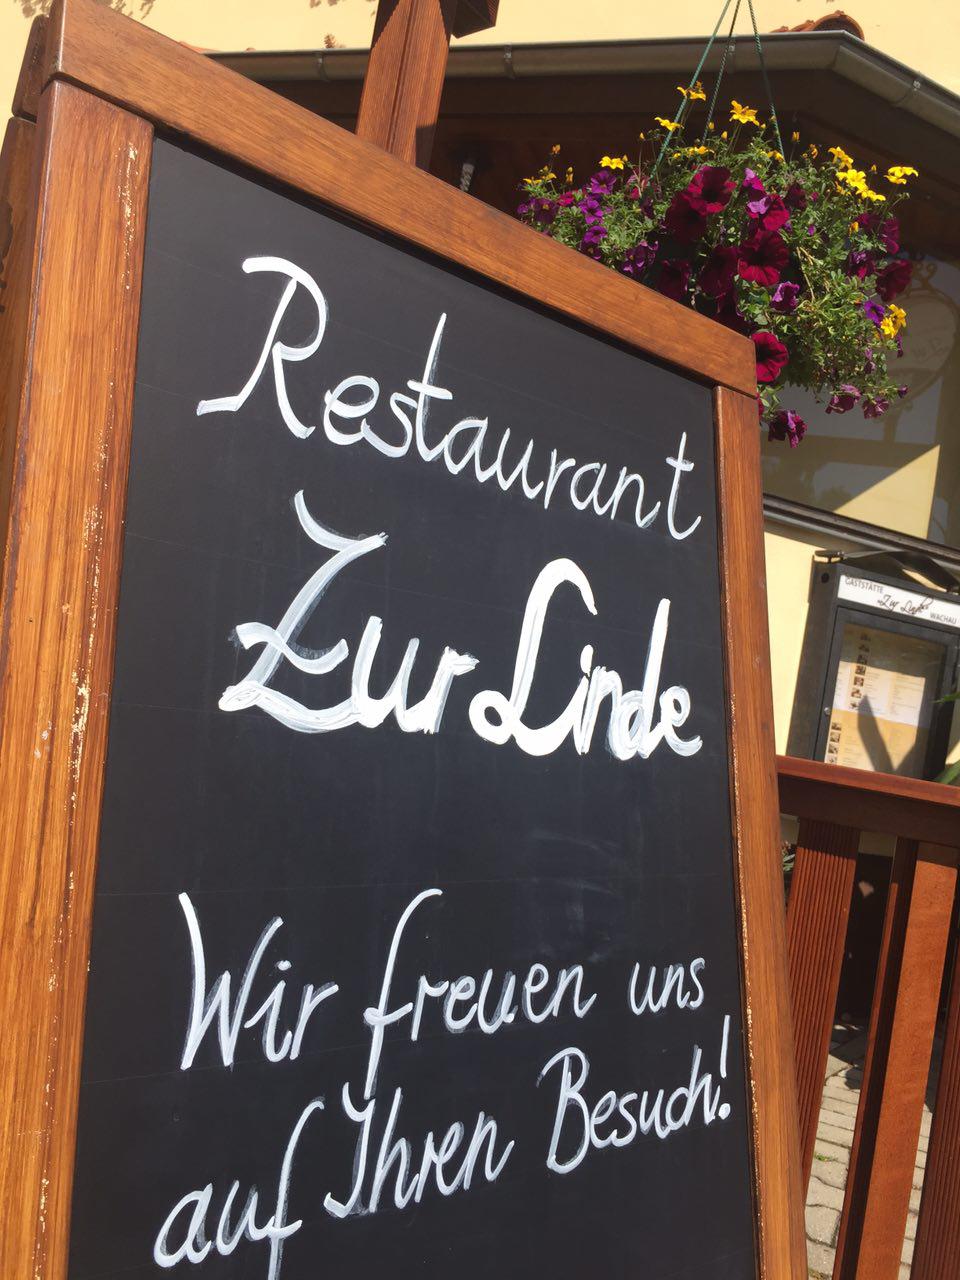 Restaurant
Zur Linde
Wir freuen uns
auf Ihren Besuch!
GASTSTÄTTE
"Zur Linde"
WACHAU